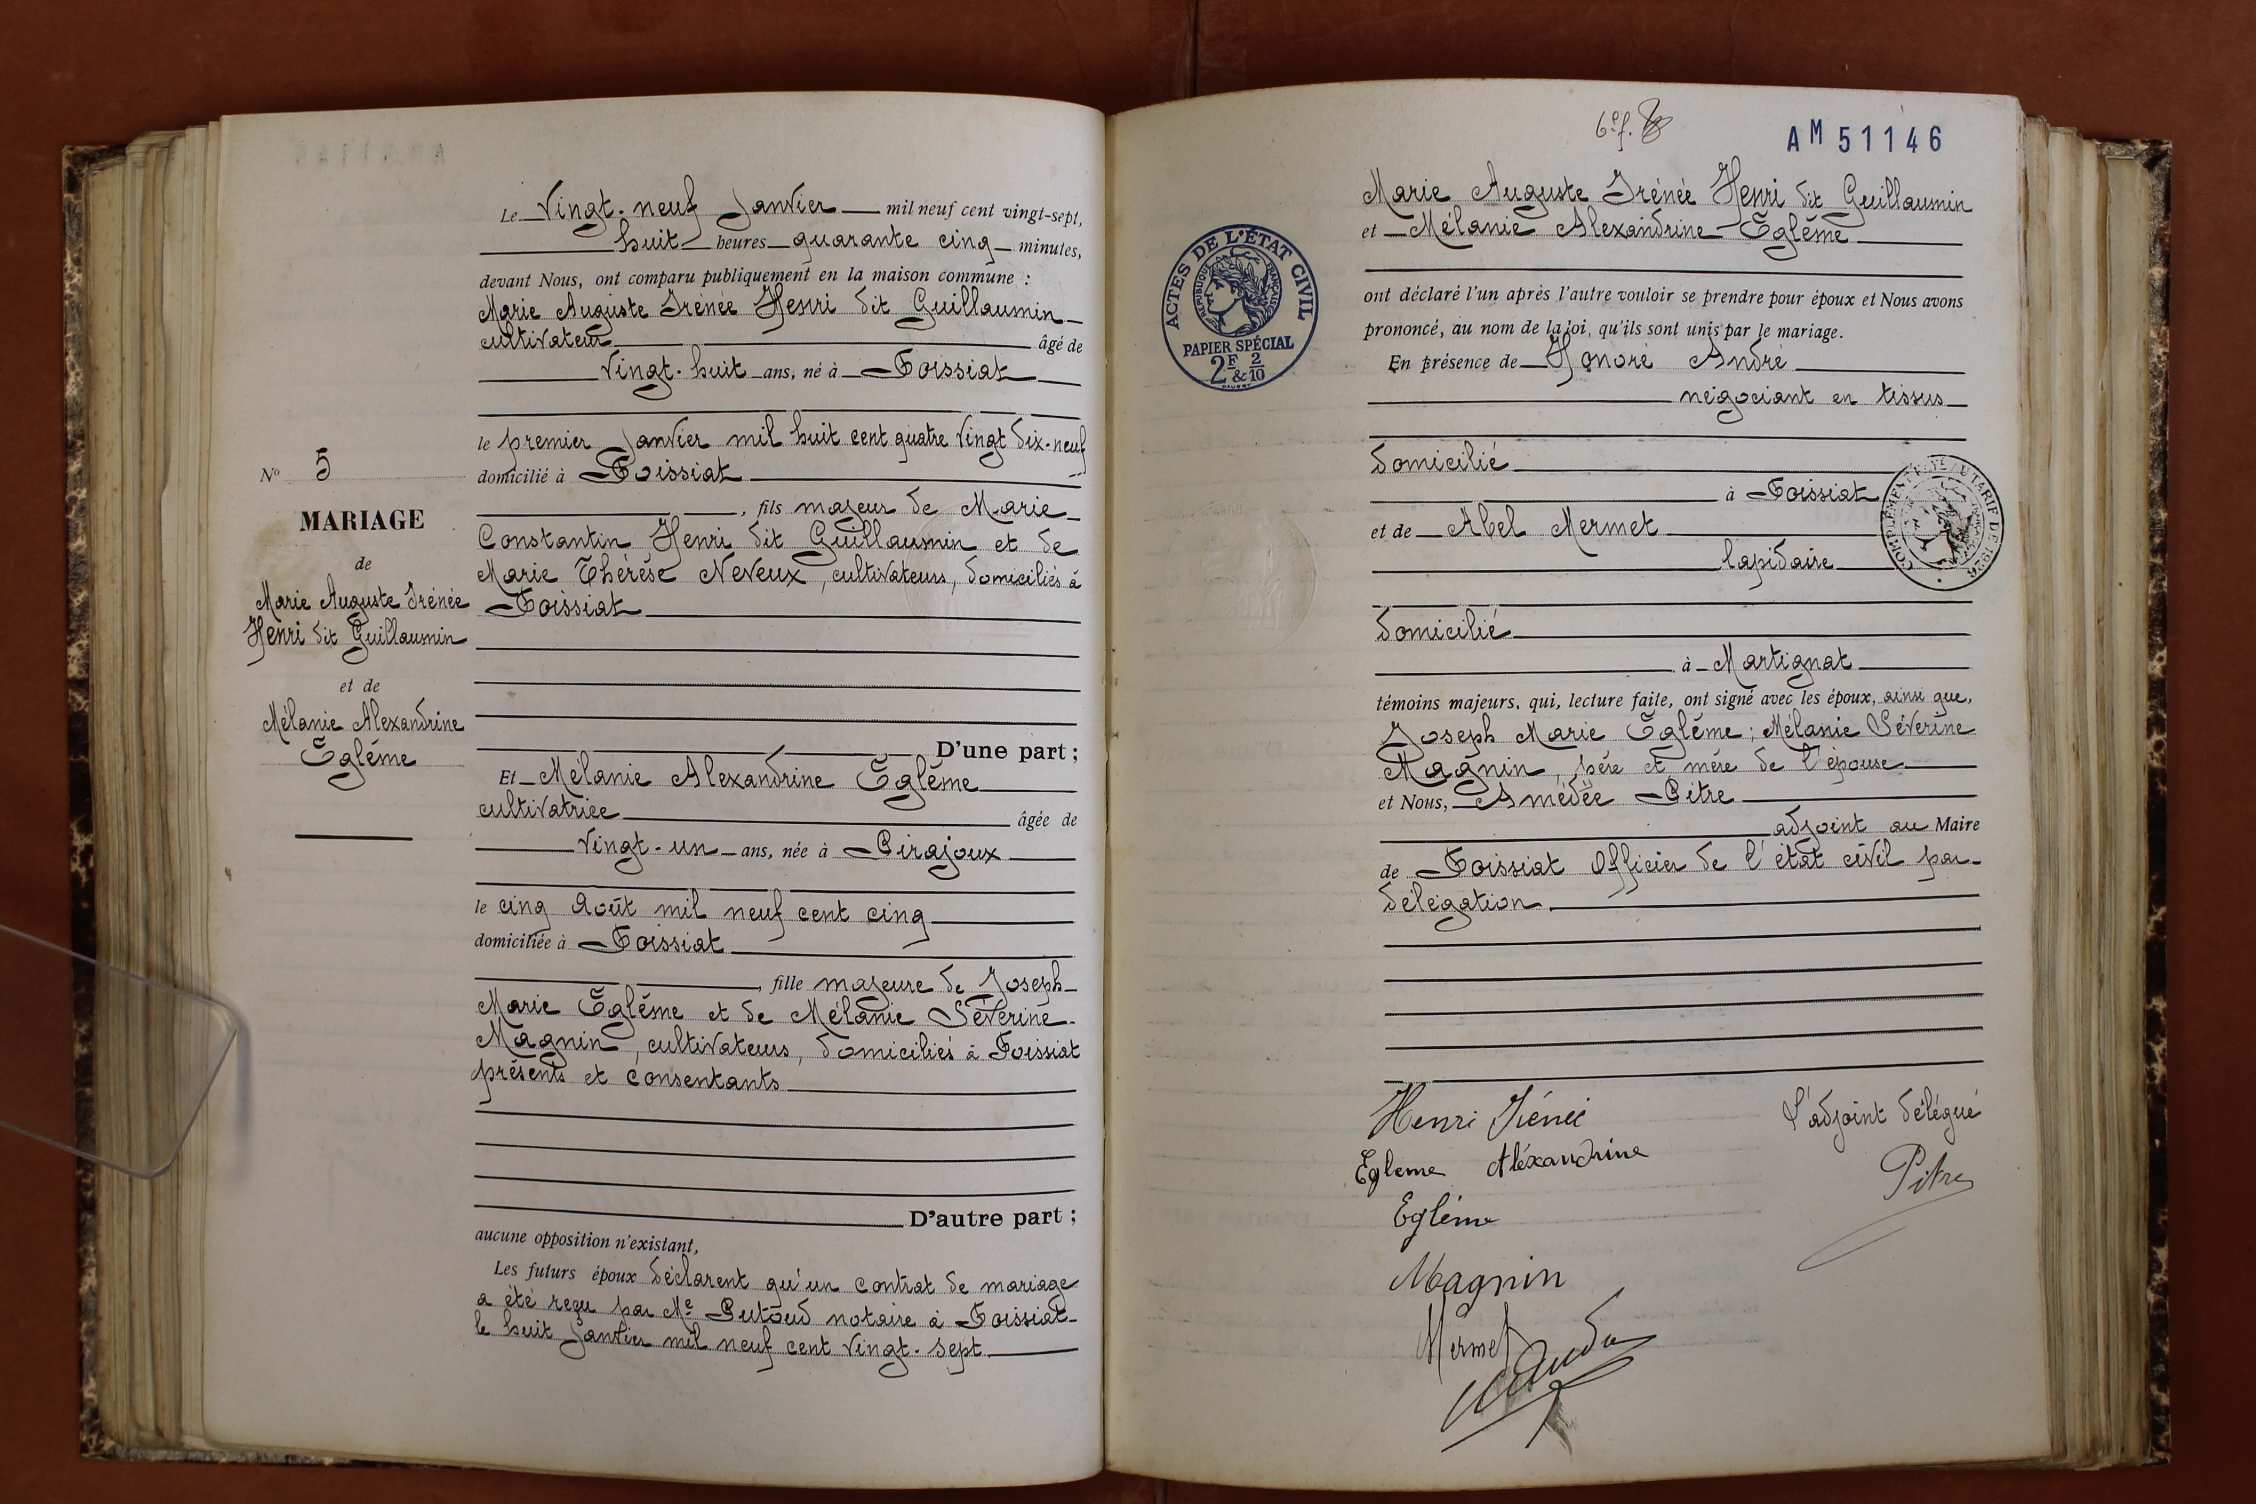 Le Vingt-neuf Janvier mil neuf cent vingt-sept,
huit heures quarante cinq minutes,
devant Nous, ont comparu publiquement en la maison commune :
Marie Auguste Irénée Henri dit Guillaumin
cultivateur âgé de
Vingt-huit ans, né à Foissiat
le premier Janvier mil huit cent quatre Vingt dix-neuf
domicilié à Foissiat
, fils majeur de Marie
Constantin Henri dit Guillaumin et de
Marie Thérèse Neveux, cultivateurs, domiciliés à
Foissiat
D'une part ;
Et Mélanie Alexandrine Eglême
cultivatrice âgée de
Vingt-un ans, née à Pirajoux
le cinq Août mil neuf cent cinq
domiciliée à Foissiat
, fille majeure de Joseph
Marie Eglême et de Mélanie Séverine
Magnin, cultivateurs, domiciliés à Foissiat
présents et consentants
D'autre part ;
aucune opposition n'existant,
Les futurs époux déclarent qu'un contrat de mariage
a été reçu par Me Putoud notaire à Foissiat
le huit Janvier mil neuf cent Vingt-sept
No 5
MARIAGE
de
Marie Auguste Irénée
Henri dit Guillaumin
et de
Mélanie Alexandrine
Eglême
6e f.
AM 51146
Marie Auguste Irénée Henri dit Guillaumin
et Mélanie Alexandrine Eglême
ont déclaré l'un après l'autre vouloir se prendre pour époux et Nous avons
prononcé, au nom de la loi, qu'ils sont unis par le mariage.
En présence de Honoré André
négociant en tissus
domicilié
à Foissiat
et de Abel Mermet
lapidaire
domicilié
à Martignat
témoins majeurs, qui, lecture faite, ont signé avec les époux, ainsi que,
Joseph Marie Eglême ; Mélanie Séverine
Magnin, père et mère de l'épouse
et Nous, Amédée Pitre
adjoint au Maire
de Foissiat Officier de l'état civil par
délégation.
ACTES DE L'ÉTAT CIVIL
RÉPUBLIQUE FRANÇAISE
PAPIER SPÉCIAL
2F & 2/10
COMPLÉMENT DE TARIF DE 1926
Henri Irénée
Egleme Aléxandrine
Egléme
Magnin
Mermet
L'adjoint délégué
Pitre